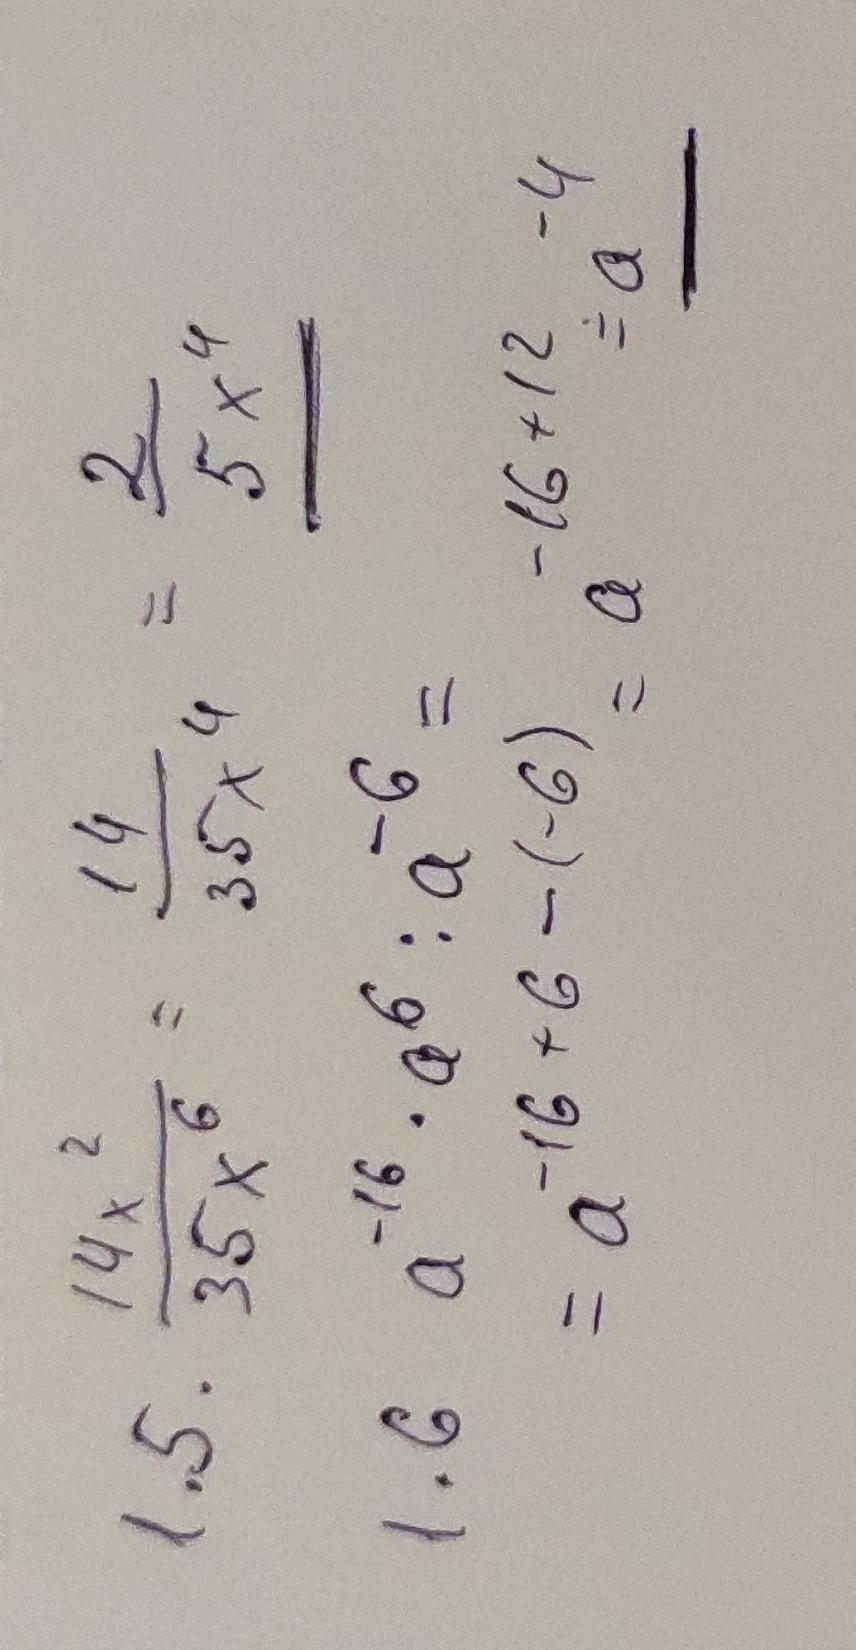 1.5. 14x²/35x⁶ = 14/35x⁴ = 2/5x⁴
1.6 a⁻¹⁶ · a⁶ : a⁻⁶ =
= a⁻¹⁶⁺⁶⁻⁽⁻⁶⁾ = a⁻¹⁶⁺¹² = a⁻⁴